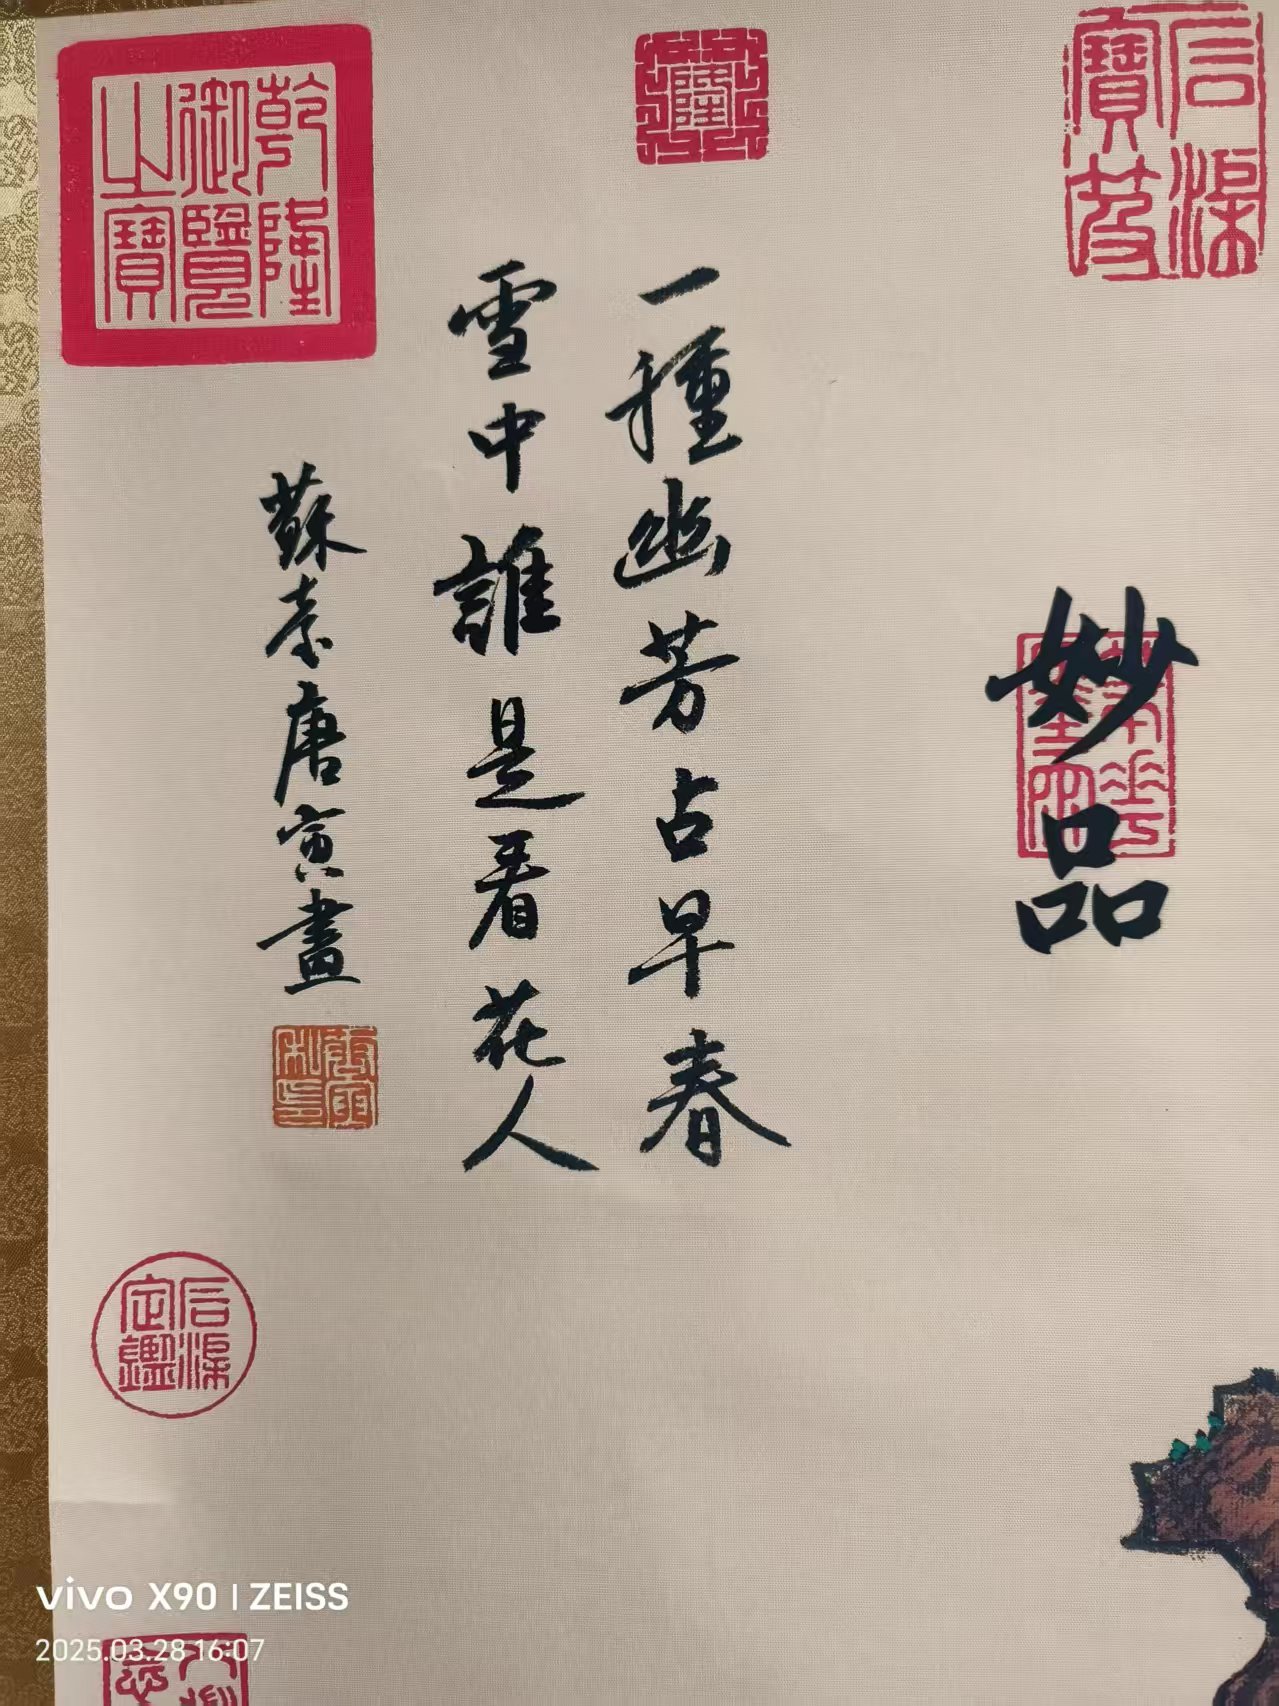 妙品
一種幽芳占早春
雪中誰是看花人
蘇臺唐寅畫
乾隆
御覽
之寶
乾隆
石渠
寶笈
石渠
定鑑
vivo X90 | ZEISS
2025.03.28 16:07